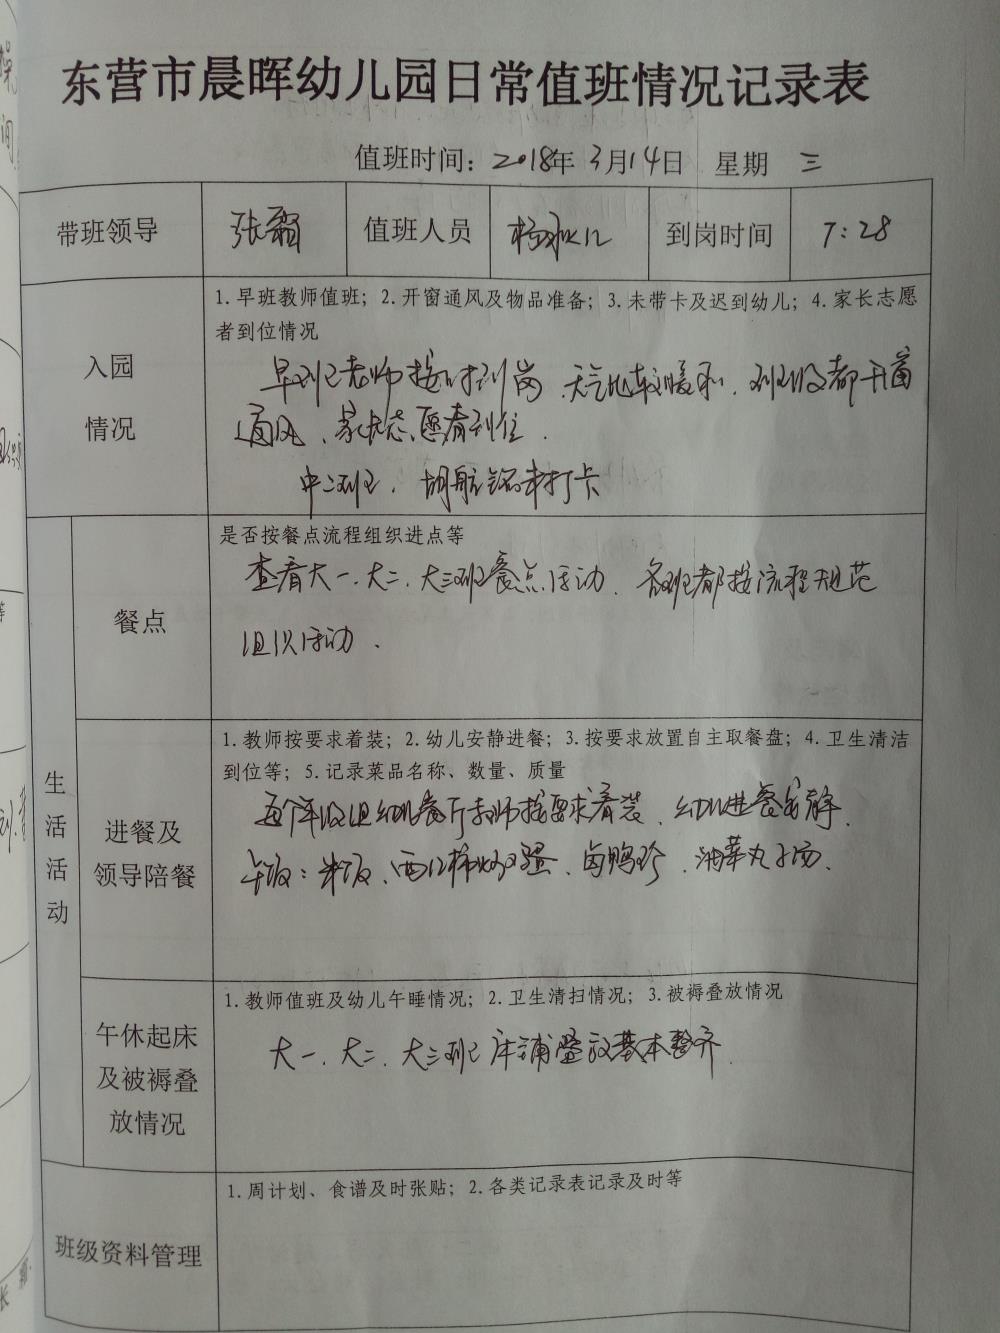 东营市晨晖幼儿园日常值班情况记录表
值班时间：2018年 3月14日 星期 三
带班领导 张霜 值班人员 到岗时间 7:28
入园
情况
1.早班教师值班；2.开窗通风及物品准备；3.未带卡及迟到幼儿；4.家长志愿
者到位情况
早班老师按时到岗，天气比较暖和，班级都开窗
通风、家长志愿者到位.
中二班，胡航铭未打卡
生活活动
餐点
是否按餐点流程组织进点等
查看大一、大二、大三班餐点活动，各班都按流程规范
组织活动.
进餐及
领导陪餐
1.教师按要求着装；2.幼儿安静进餐；3.按要求放置自主取餐盘；4.卫生清洁
到位等；5.记录菜品名称、数量、质量
每个年级组幼儿餐厅教师按要求着装，幼儿进餐安静.
午饭：米饭、西红柿炒鸡蛋、卤鸭珍、油菜丸子汤.
午休起床
及被褥叠
放情况
1.教师值班及幼儿午睡情况；2.卫生清扫情况；3.被褥叠放情况
大一、大二、大三班床铺叠放基本整齐.
班级资料管理
1.周计划、食谱及时张贴；2.各类记录表记录及时等